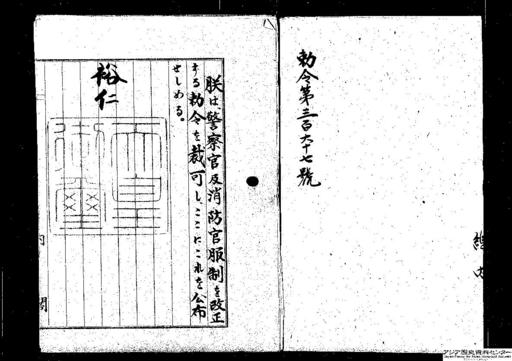 勅令第三百六十七號
朕は警察官及消防官服制を改正
する勅令を裁可し、ここにこれを公布
せしめる。
裕仁
天皇御璽
内閣
アジア歴史資料センター